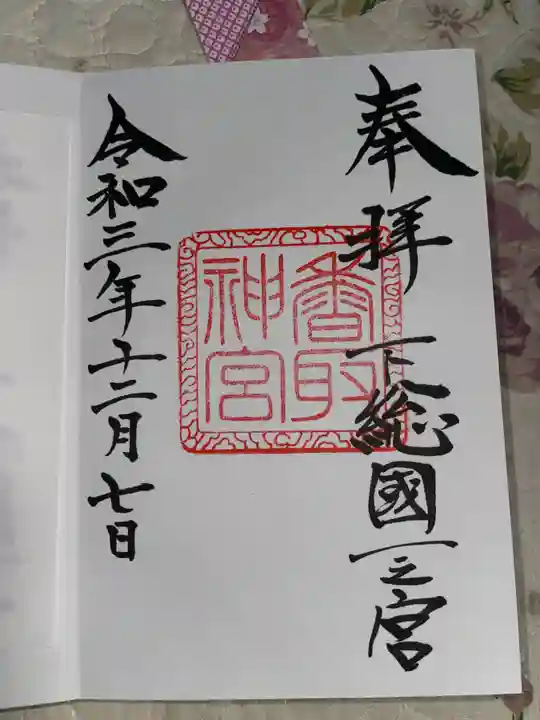 奉拝 下総國一之宮
香取
神宮
令和三年十二月七日